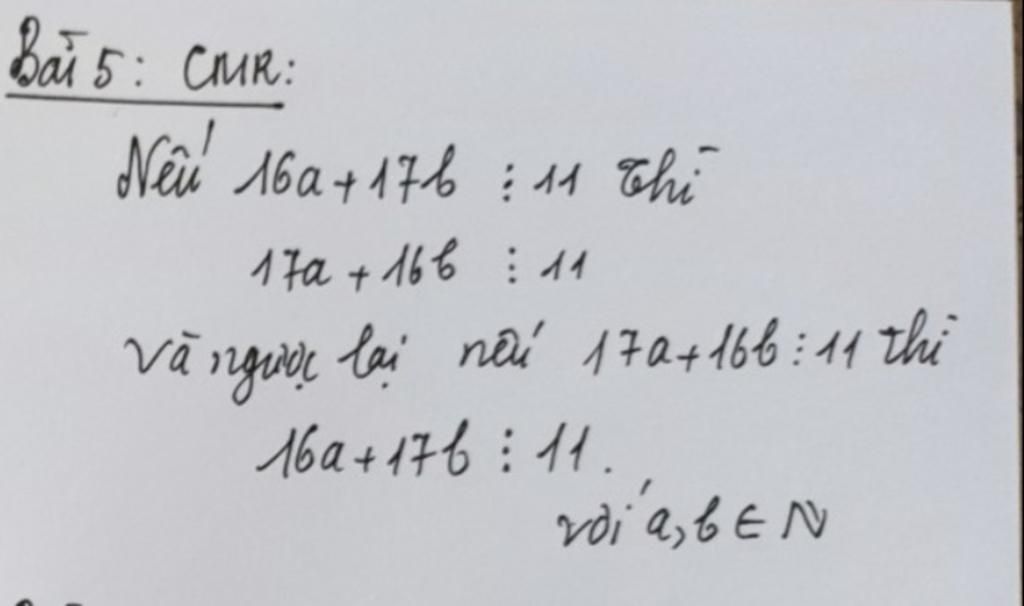 Bài 5: CMR:
Nếu 16a + 17b ⋮ 11 thì
17a + 16b ⋮ 11
và ngược lại nếu 17a + 16b ⋮ 11 thì
16a + 17b ⋮ 11.
với a, b ∈ N